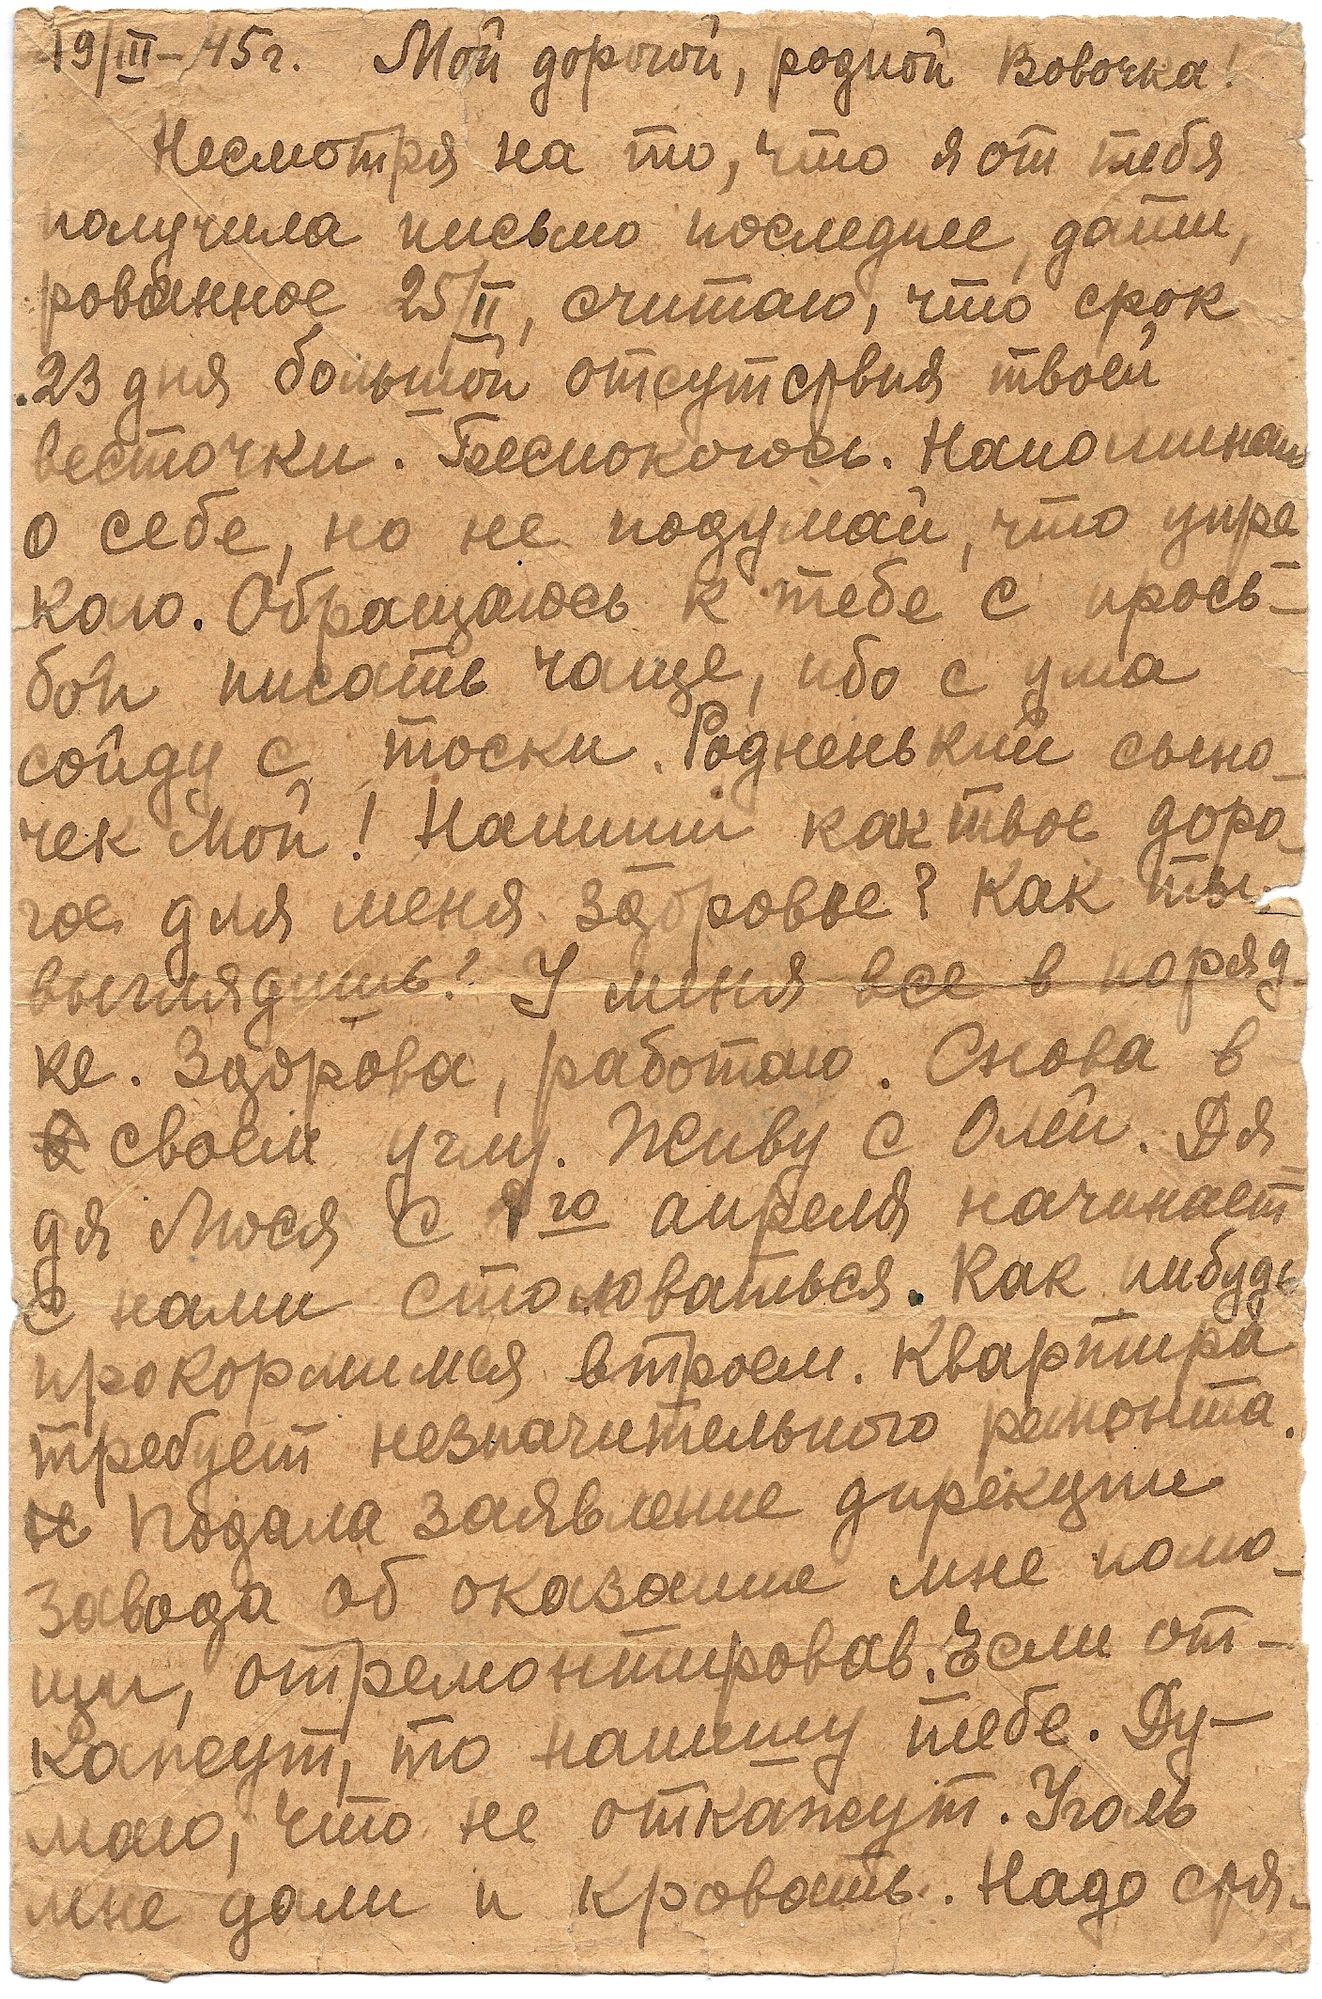 19/III-45г. Мой дорогой, родной Вовочка!
Несмотря на то, что я от тебя
получила письмо последнее, дати,
рованное 25/II, считаю, что срок
23 дня большой отсутствия твоей
весточки. Беспокоюсь. Напоминаю
о себе, но не подумай, что упре
каю. Обращаюсь к тебе с прось-
бой писать чаще, ибо с ума
сойду с тоски. Родненький сыно-
чек мой! Напиши как твое доро-
гое для меня здоровье? Как ты
выглядишь? У меня все в поряд-
ке. Здорова, работаю. Снова в
своем углу. Живу с Олей. Дя
дя Люся с 1го апреля начинает
с нами столоваться. Как нибудь
прокормимся втроем. Квартира
требует незначительного ремонта.
Подала заявление дирекции
завода об оказание мне помо-
щи, отремонтировав. Если от-
кажут, то напишу тебе. Ду-
маю, что не откажут. Уголь
мне дали и кровать. Надо спя-